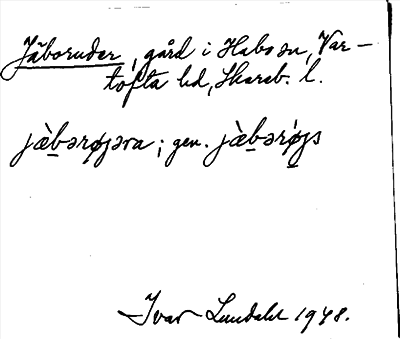 Jäboruder, gård i Habo sn, Var-
tofta hd, Skarab. l.
jæ̀bərøjəra; gen. jæ̀bərø̀js
Ivar Lundahl 1948.